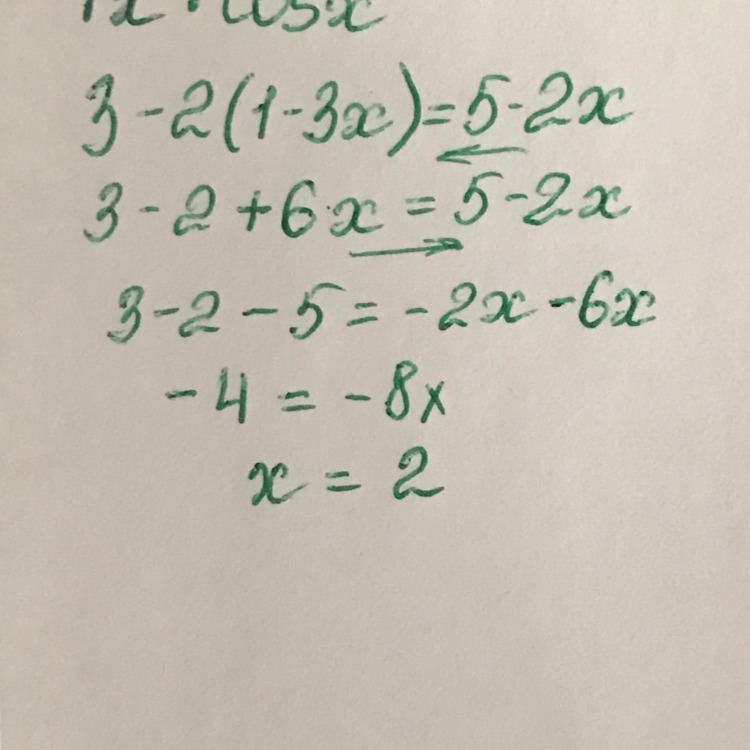 3-2(1-3x)=5-2x
3-2+6x=5-2x
3-2-5=-2x-6x
-4=-8x
x=2